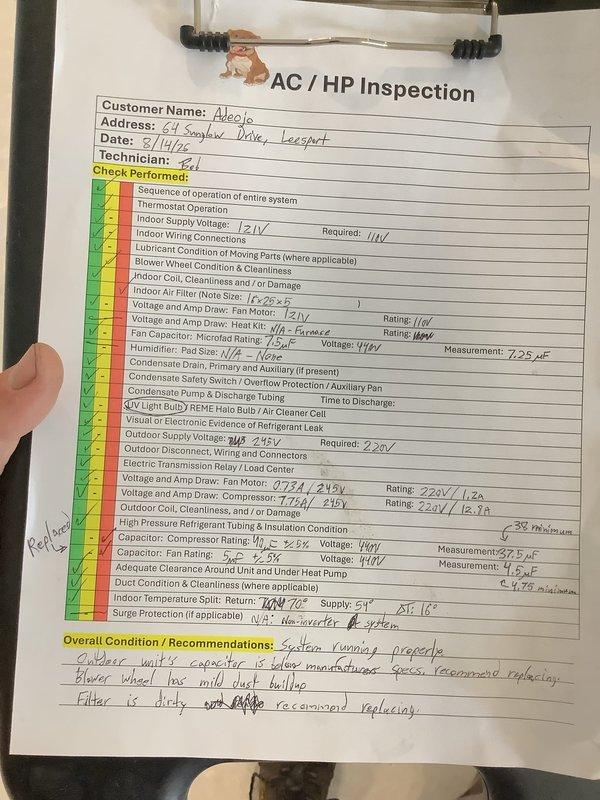 AC / HP Inspection
Customer Name: Adeojo
Address: 64 Sunglow Drive, Leesport
Date: 8/14/25
Technician: Bob
Check Performed:
Sequence of operation of entire system
Thermostat Operation
Indoor Supply Voltage: 121V Required: 110V
Indoor Wiring Connections
Lubricant Condition of Moving Parts (where applicable)
Blower Wheel Condition & Cleanliness
Indoor Coil, Cleanliness and / or Damage
Indoor Air Filter (Note Size: 16x25x5 )
Voltage and Amp Draw: Fan Motor: 121V Rating: 110V
Voltage and Amp Draw: Heat Kit: N/A - Furnace Rating:
Fan Capacitor: Microfad Rating: 7.5 µF Voltage: 440V Measurement: 7.25 µF
Humidifier: Pad Size: N/A - None
Condensate Drain, Primary and Auxiliary (if present)
Condensate Safety Switch / Overflow Protection / Auxiliary Pan
Condensate Pump & Discharge Tubing Time to Discharge:
UV Light Bulb / REME Halo Bulb / Air Cleaner Cell
Visual or Electronic Evidence of Refrigerant Leak
Outdoor Supply Voltage: 245V Required: 220V
Outdoor Disconnect, Wiring and Connectors
Electric Transmission Relay / Load Center
Voltage and Amp Draw: Fan Motor: 0.73A / 245V Rating: 220V / 1.2a
Voltage and Amp Draw: Compressor: 7.75A / 245V Rating: 220V / 12.8A
Outdoor Coil, Cleanliness, and / or Damage
High Pressure Refrigerant Tubing & Insulation Condition 38 minimum
Replaced Capacitor: Compressor Rating: 40 µF +/- 5% Voltage: 440V Measurement: 37.5 µF
Capacitor: Fan Rating: 5 µF +/- 5% Voltage: 440V Measurement: 4.5 µF
Adequate Clearance Around Unit and Under Heat Pump 4.75 minimum
Duct Condition & Cleanliness (where applicable)
Indoor Temperature Split: Return: 70° Supply: 54° ΔT: 16°
Surge Protection (if applicable) N/A: Non-inverter system
Overall Condition / Recommendations: System running properly
Outdoor unit's capacitor is below manufacturers specs, recommend replacing.
Blower wheel has mild dust buildup
Filter is dirty recommend replacing.